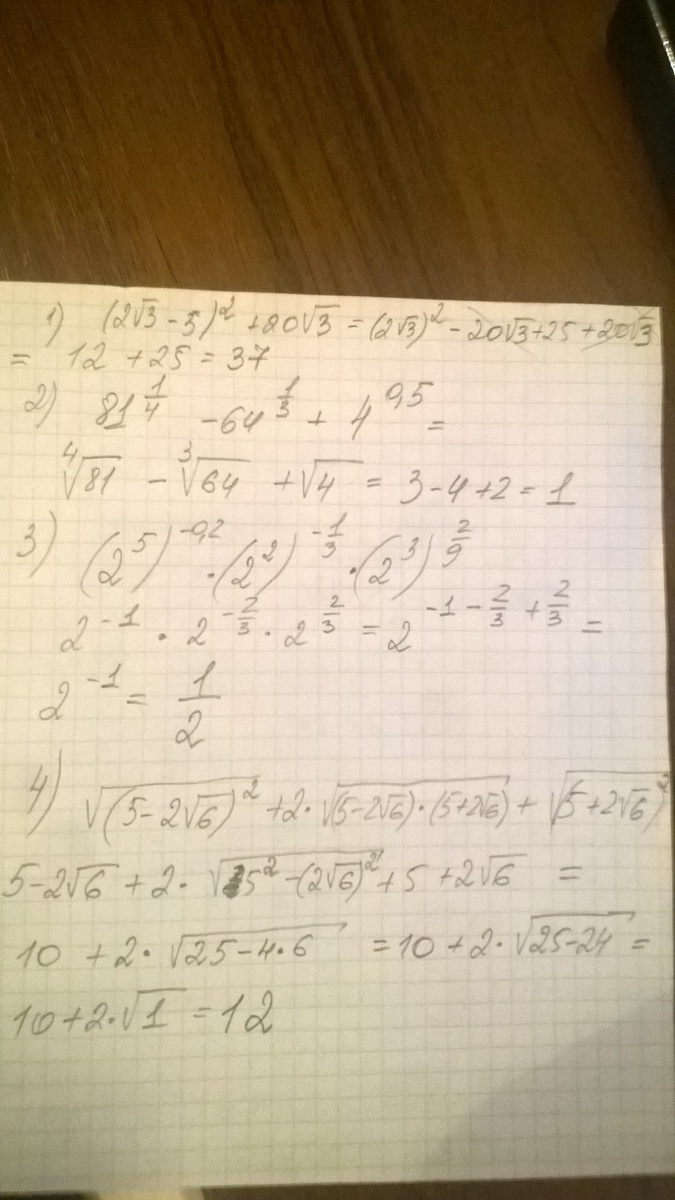 1) (2√3 - 5)² + 20√3 = (2√3)² - 20√3 + 25 + 20√3
= 12 + 25 = 37
2) 81^(1/4) - 64^(1/3) + 4^(0,5) =
⁴√81 - ³√64 + √4 = 3 - 4 + 2 = 1
3) (2⁵)^(-0,2) · (2²)^(-1/3) · (2³)^(2/9)
2^(-1) · 2^(-2/3) · 2^(2/3) = 2^(-1 - 2/3 + 2/3) =
2^(-1) = 1/2
4) √(5 - 2√6)² + 2 · √(5 - 2√6) · (5 + 2√6) + √(5 + 2√6)²
5 - 2√6 + 2 · √5² - (2√6)² + 5 + 2√6 =
10 + 2 · √25 - 4 · 6 = 10 + 2 · √25 - 24 =
10 + 2 · √1 = 12